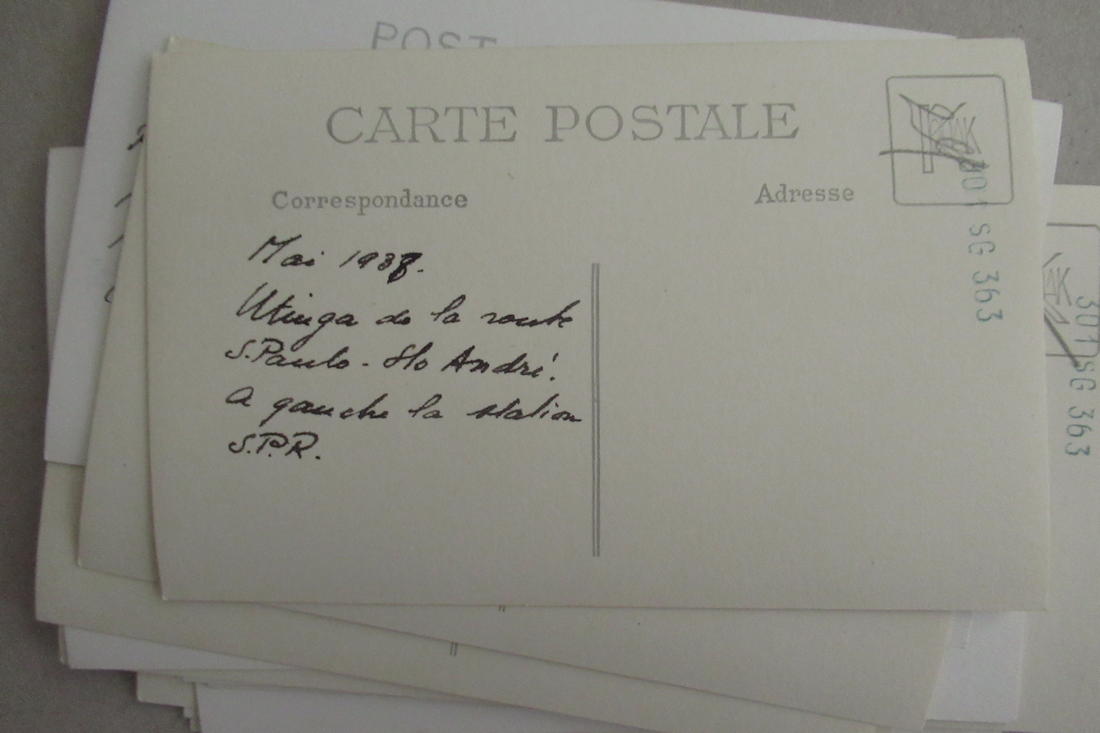 POST
CARTE POSTALE
Correspondance
Adresse
301 SG 363
Mai 1938.
Utinga de la route
S.Paulo - Sto André.
A gauche la station
S.P.R.
301 SG 363